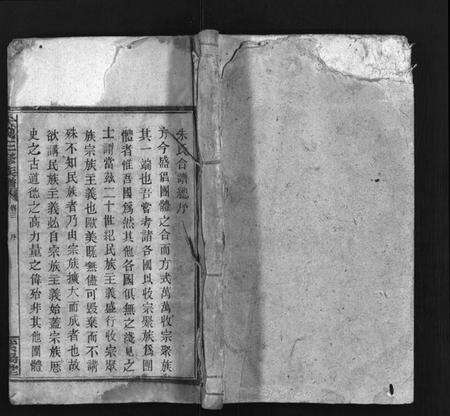 朱氏合譜總序
方今盛倡團體之合而方式萬萬收宗聚族
其一端也吾嘗考諸各國以收宗聚族爲團
體者惟吾國爲然其他各國俱無之淺見之
士謂當玆二十世紀民族主義盛行收宗聚
族宗族主義也歐美旣無儘可毁棄而不講
殊不知民族者乃由宗族擴大而成者也故
欲講民族主義必自宗族主義始蓋宗族歷
史之古道德之高力量之偉殆非其他團體